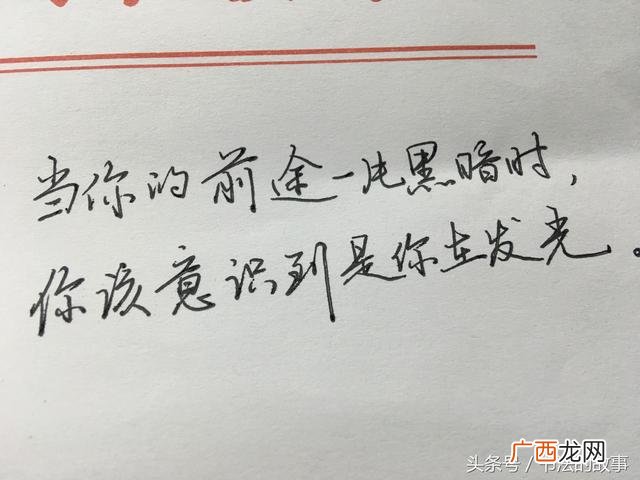 当你的前途一片黑暗时，
你该意识到是你在发光。
广西龙网
头条号／书法的故事